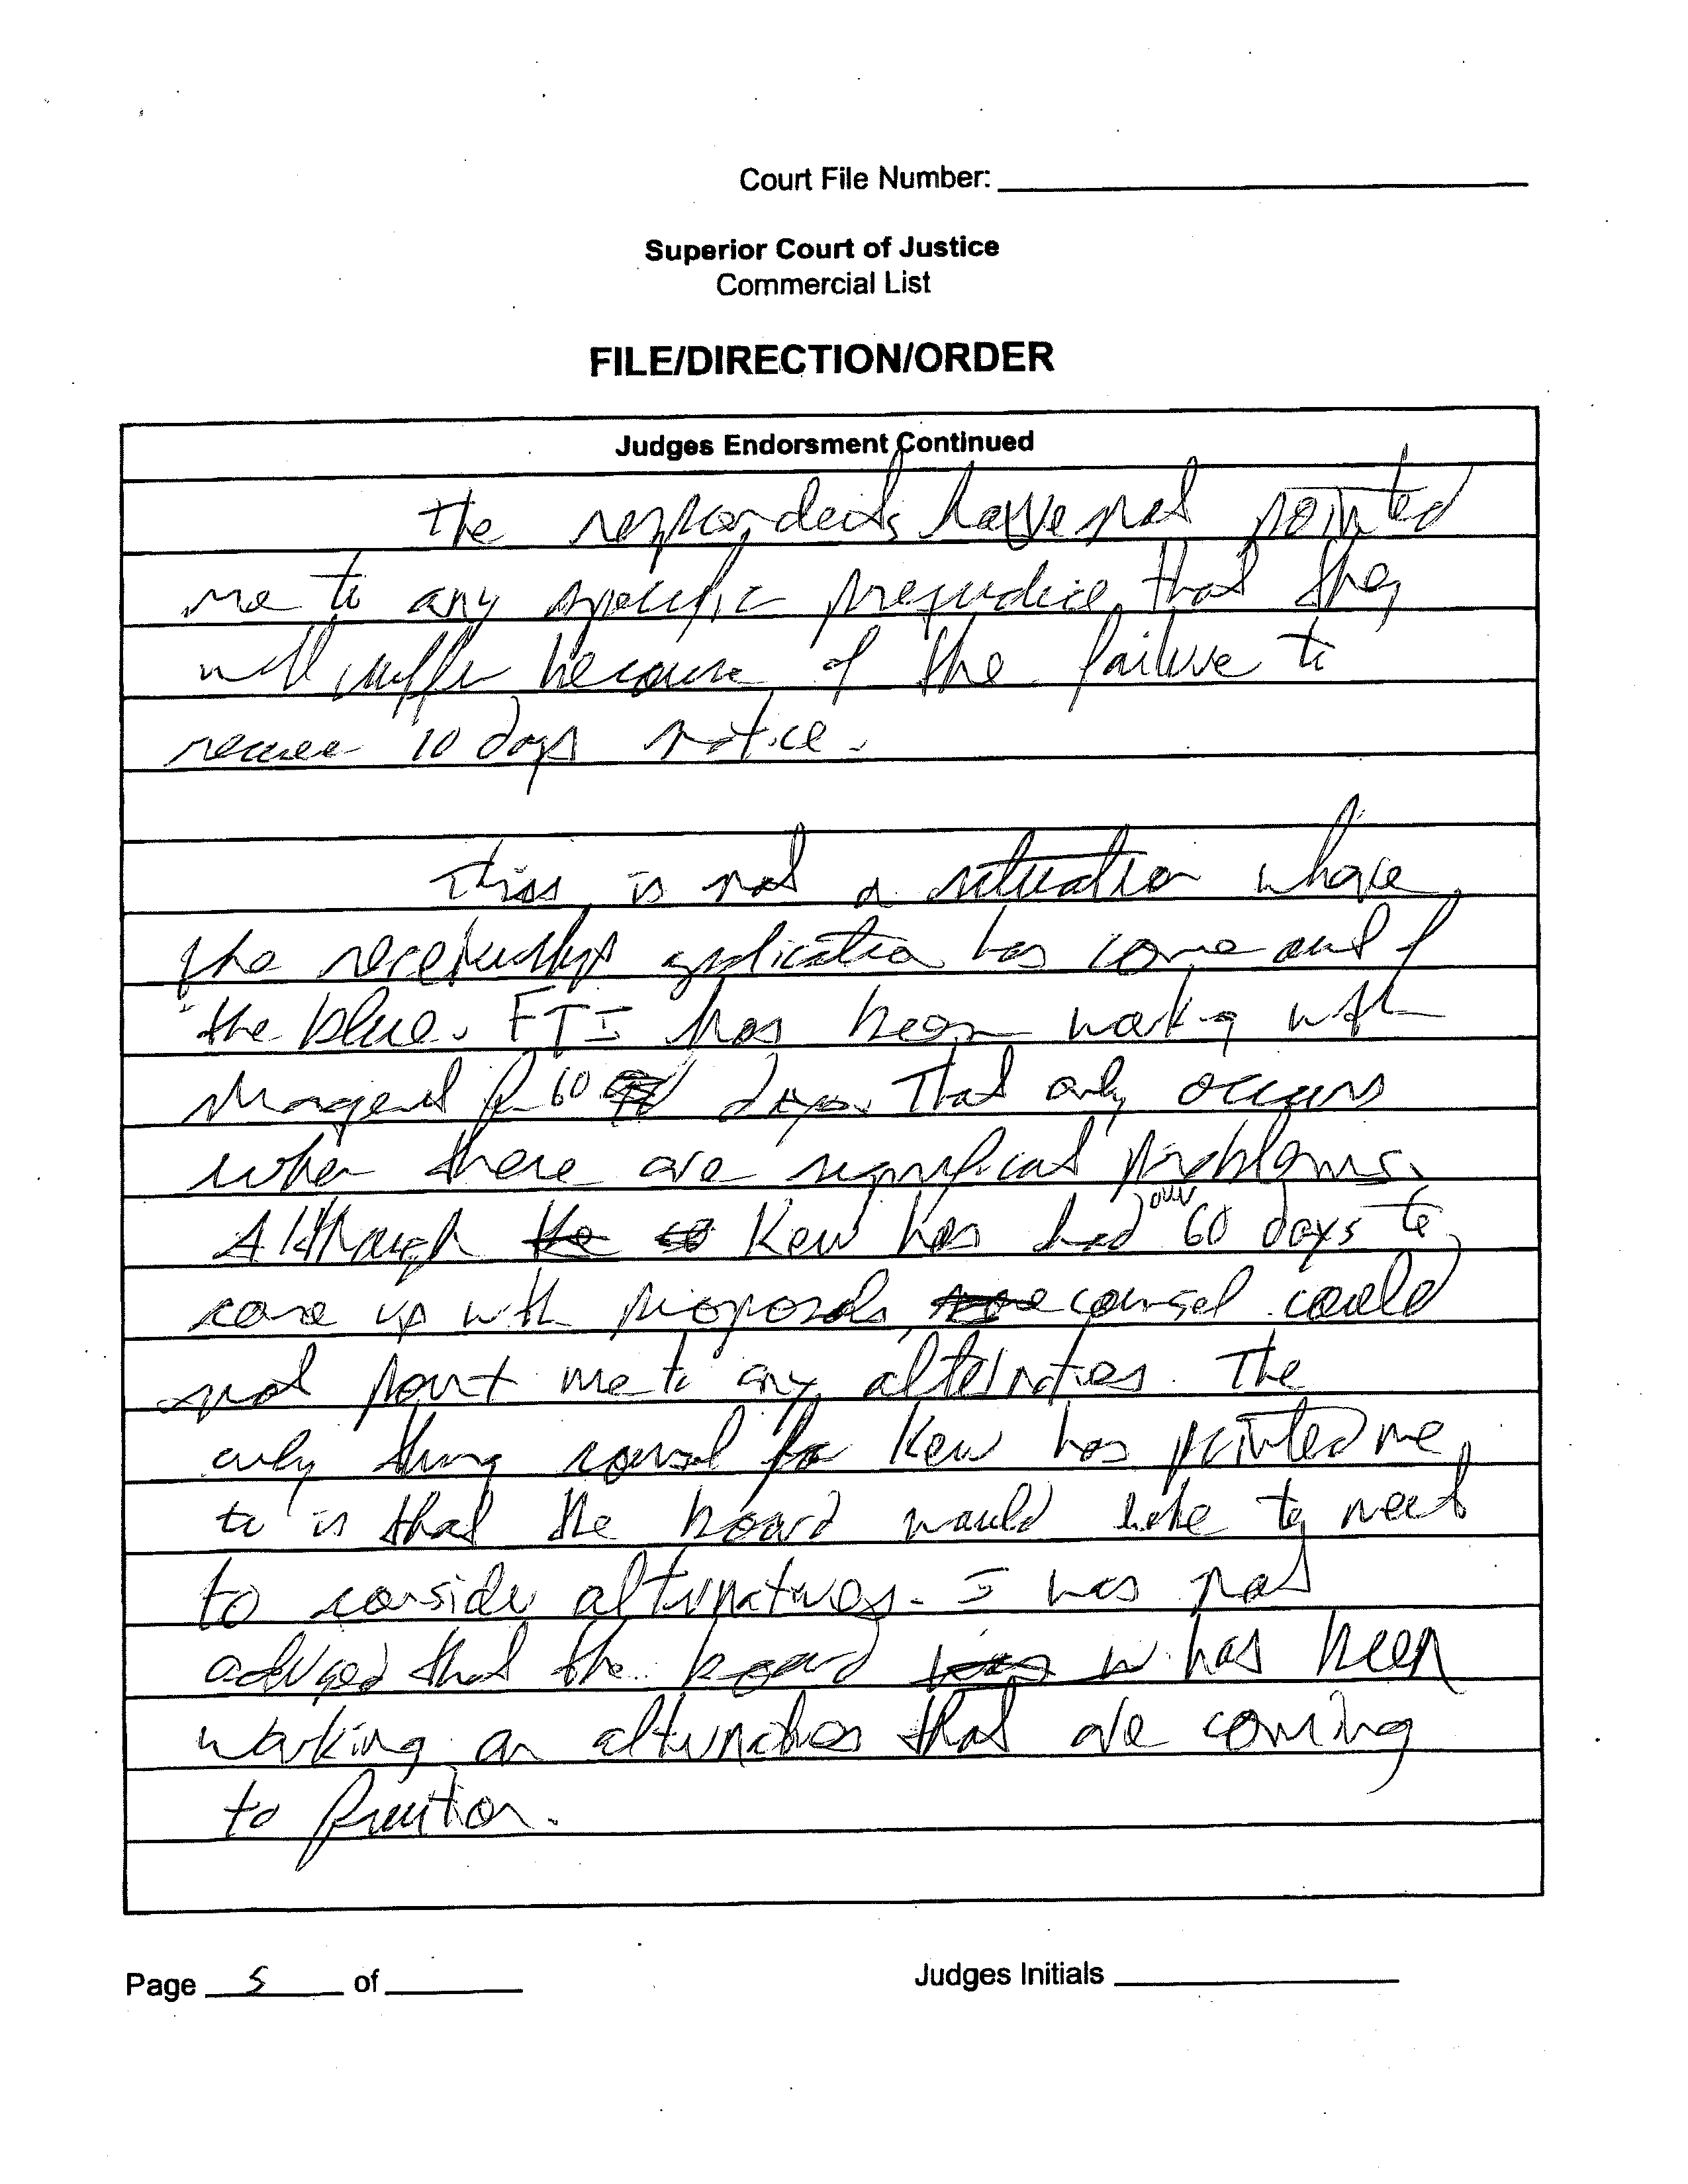 Court File Number:
Superior Court of Justice
Commercial List
FILE/DIRECTION/ORDER
Judges Endorsment Continued
The respondents have not pointed
me to any specific prejudice that they
will suffer because of the failure to
receive 10 days notice.
This is not a situation where
the receivership application has come out of
the blue. FTI has been working with
for 60 days. That only occurs
when there are significant problems.
Although Kew has had over 60 days to
come up with proposals, counsel could
not point me to any alternatives. The
only thing counsel for Kew has pointed me
to is that the board would like to meet
to consider alternatives. I was not
advised that the board has been
working on alternatives that are coming
to fruition.
Page 5 of
Judges Initials